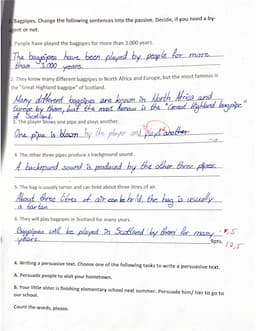 3. Bagpipes. Change the following sentences into the passive. Decide, if you need a by-
agent or not.
People have played the bagpipes for more than 3.000 years.
The bagpipes have been played by people for more
than 3.000 years.
2. They know many different bagpipes in North Africa and Europe, but the most famous is
the "Great Highland bagpipe" of Scotland.
Many different bagpipes are known in North Africa and
Europe by them, but the most famous is the "Great Highland bagpipe"
of Scotland.
The player blows one pipe and plays another.
One pipe is blown by the player and played another.
6. The other three pipes produce a background sound.
A background sound is produced by the other three pipes.
5. The bag is usually tartan and can hold about three litres of air.
About three litres of air can be held, the bag is usually
a tartan.
6. They will play bagpipes in Scotland for many years.
Bagpipes will be played in Scotland by them for many
years.
9pts.
12,5
4. Writing a persuasive text. Choose one of the following tasks to write a persuasive text.
A. Persuade people to visit your hometown.
B. Your little sister is finishing elementary school next summer. Persuade him/ her to go to
our school.
Count the words, please.